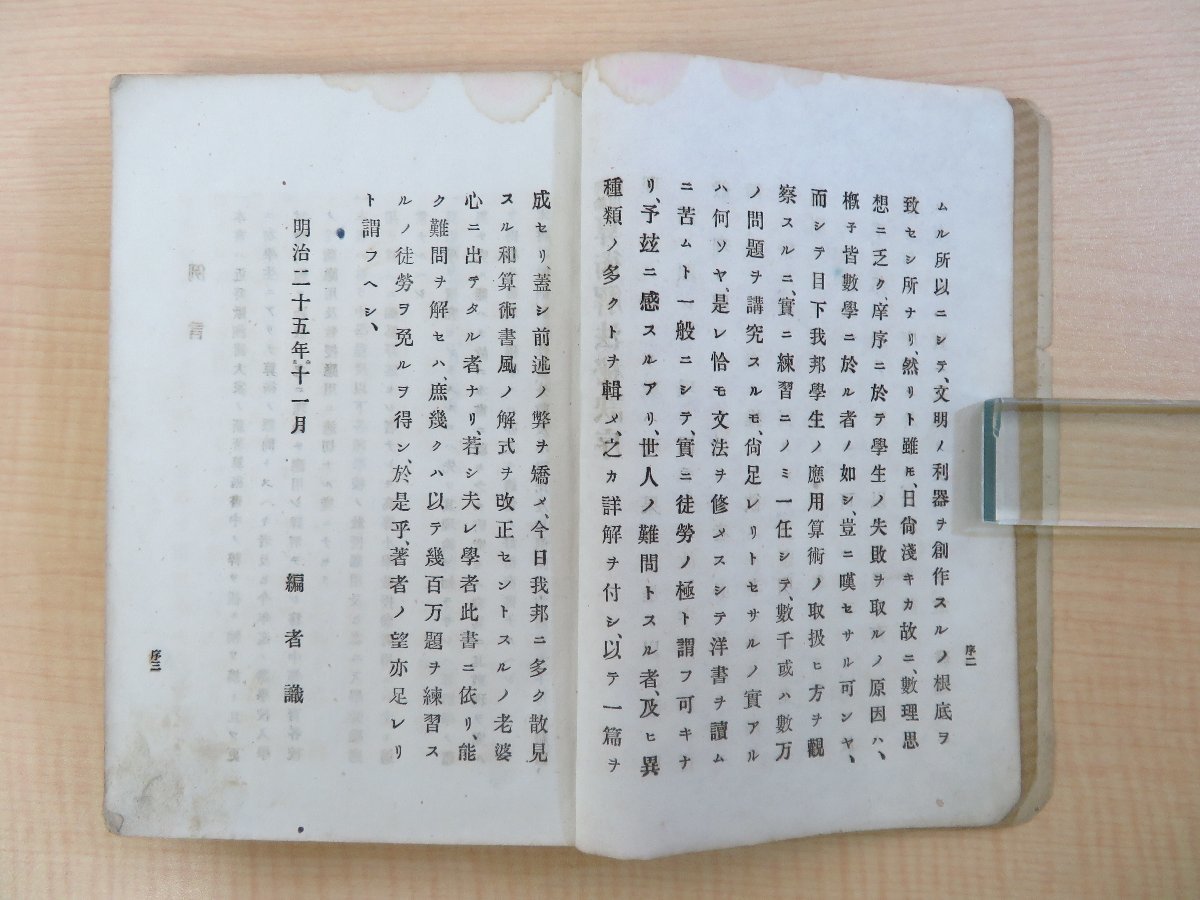 ムル所以ニシテ、文明ノ利器ヲ創作スルノ根底ヲ
致セシ所ナリ、然リト雖モ、日尙淺キカ故ニ、數理思
想ニ乏ク、庠序ニ於テ學生ノ失敗ヲ取ルノ原因ハ、
槪子皆數學ニ於ル者ノ如シ、豈ニ嘆セサル可ンヤ、
而シテ目下我邦學生ノ應用算術ノ取扱ヒ方ヲ觀
察スルニ、實ニ練習ニノミ一任シテ、數千或ハ數万
ノ問題ヲ講究スルモ、尙足レリトセサルノ實アル
ハ何ソヤ、是レ恰モ文法ヲ修メスシテ洋書ヲ讀ム
ニ苦ムト一般ニシテ、實ニ徒勞ノ極ト謂フ可キナ
リ、予玆ニ感スルアリ、世人ノ難問トスル者、及ヒ異
種類ノ多クトヲ輯メ、之カ詳解ヲ付シ、以テ一篇ヲ
序二
成セリ、蓋シ前述ノ弊ヲ矯メ、今日我邦ニ多ク散見
スル和算術書風ノ解式ヲ改正セントスルノ老婆
心ニ出テタル者ナリ、若シ夫レ學者此書ニ依リ、能
ク難問ヲ解セハ、庶幾クハ以テ幾百万題ヲ練習ス
ルノ徒勞ヲ免ルヲ得ン、於是乎、著者ノ望亦足レリ
ト謂フヘシ、
明治二十五年十一月
編者識
序三